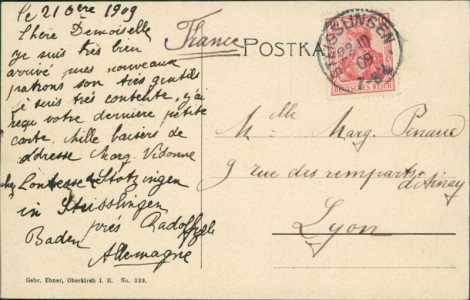 Le 21 9bre 1909
Chère Demoiselle
je suis très bien
arrivé mes nouveaux
patrons son très gentils
je suis très contente, j'ai
reçu votre dernière petite
carte. Mille baisers de
adresse Marg. Vidonne
chez Contesse Stotzingen
in Steisslingen
près Radolfzell
Baden
Allemagne
Gebr. Ebner, Oberkirch i. B. No. 339.
France
POSTKA
STEISSLINGEN
22
09
DEUTSCHES REICH
Mlle Marg. Penaud
9 rue des remparts
d'Ainay
Lyon